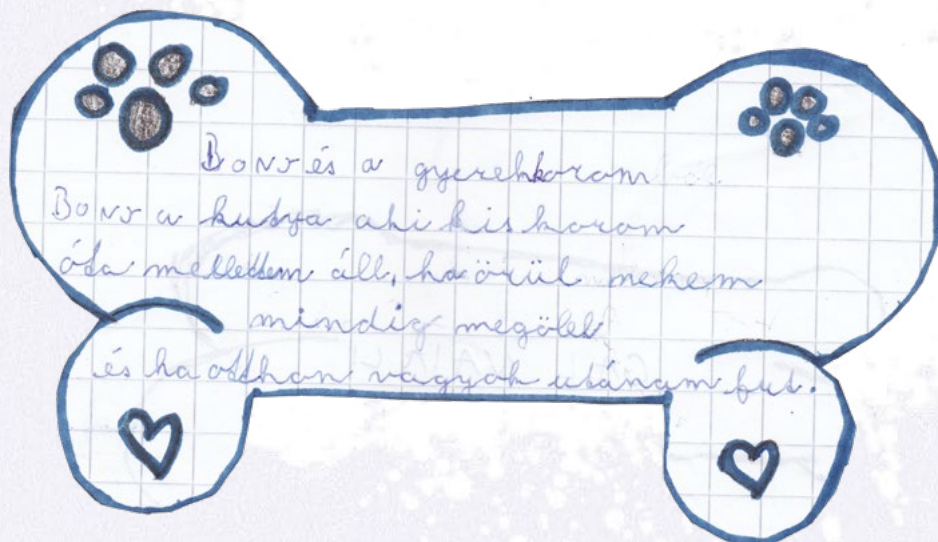 Bows és a gyerekkorom
Bows a kutya aki kis korom
óta mellettem áll, ha örül nekem
mindig megölel
és ha otthon vagyok utánam fut.